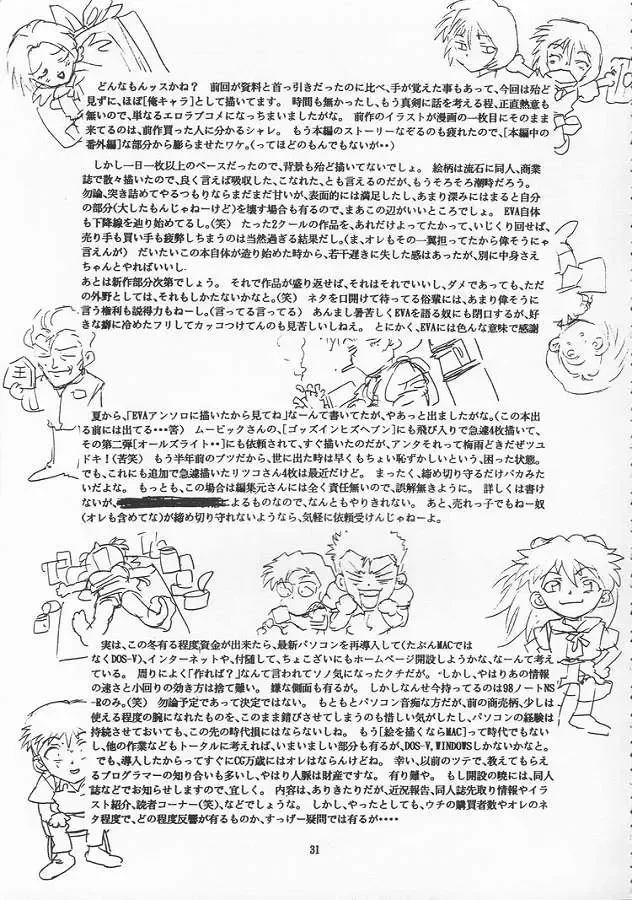 どんなもんッスかね？　前回が資料と首っ引きだったのに比べ、手が覚えた事もあって、今回は殆ど
見ずに、ほぼ[俺キャラ]として描いてます。　時間も無かったし、もう真剣に話を考える程、正直熱意も
無いので、単なるエロラブコメになっちまいましたがな。　前作のイラストが漫画の一枚目にそのまま
来てるのは、前作買った人に分かるシャレ。　もう本編のストーリーなぞるのも疲れたので、[本編中の
番外編]な部分から膨らませたワケ。(ってほどのもんでもないが・・)
しかし一日一枚以上のペースだったので、背景も殆ど描いてないでしょ。　絵柄は流石に同人、商業
誌で散々描いたので、良く言えば吸収した、こなれた、とも言えるのだが、もうそろそろ潮時だろう。
勿論、突き詰めてやるつもりならまだまだ甘いが、表面的には満足したし、あまり深みにはまると自分
の部分(大したもんじゃねーけど)を壊す場合も有るので、まあこの辺がいいところでしょ。　EVA自体
も下降線を辿り始めてるし。(笑)　たった2クールの作品を、あれだけよってたかって、いじくり回せば、
売り手も買い手も疲弊しちまうのは当然過ぎる結果だし。(ま、オレもその一翼担ってたから偉そうにゃ
言えんが)　だいたいこの本自体が造り始めた時から、若干遅きに失した感はあったが、別に中身さえ
ちゃんとやればいいし．
あとは新作部分次第でしょう。　それで作品が盛り返せば、それはそれでいいし、ダメであっても、ただ
の外野としては、それもしかたないかなと。(笑)　ネタを口開けて待ってる俗輩には、あまり偉そうに
言う権利も説得力もねーし。(言ってる言ってる)　あんまし暑苦しくEVAを語る奴にも閉口するが、好
きな癖に冷めたフリしてカッコつけてんのも見苦しいしねえ。　とにかく、EVAには色んな意味で感謝
王
夏から、「EVAアンソロに描いたから見てね」なーんて書いてたが、やあっと出ましたがな。(この本出
る前には出てる・・・答)　ムービックさんの、[ゴッズインヒズヘブン]にも飛び入りで急遽4枚描いて、
その第二弾[オールズライト・・]にも依頼されて、すぐ描いたのだが、アンタそれって梅雨どきだぜツユ
ドキ！(苦笑)　もう半年前のブツだから、世に出た時は早くもちょい恥ずかしいという、困った状態。
でも、これにも追加で急遽描いたリツコさん4枚は最近だけど。　まったく、締め切り守るだけバカみた
いだよな。　もっとも、この場合は編集元さんには全く責任無いので、誤解無きように。　詳しくは書け
ないが、によるものなので、なんともやりきれない。　あと、売れっ子でもねー奴
(オレも含めてな)が締め切り守れないようなら、気軽に依頼受けんじゃねーよ。
実は、この冬有る程度資金が出来たら、最新パソコンを再導入して(たぶんMACでは
なくDOS-V)、インターネットや、付随して、ちょこざいにもホームページ開設しようかな、なーんて考え
ている。　周りによく「作れば？」なんて言われてソノ気になったクチだが。　しかし、やはりあの情報
の速さと小回りの効き方は捨て難い。　嫌な側面も有るが。　しかしなんせ今持ってるのは98ノートNS
-Rのみ。(笑)　勿論予定であって決定ではない。　もともとパソコン音痴な方だが、前の商売柄、少しは
使える程度の腕になれたものを、このまま錆びさせてしまうのも惜しい気がしたし、パソコンの経験は
持続させておいても、この先の時代損にはならないしね。　もう[絵を描くならMAC]って時代でもない
し、他の作業などもトータルに考えれば、いまいましい部分も有るが、DOS-V、WINDOWSしかないかなと。
でも、導入したからってすぐにCG万歳にはオレはならんけどね。　幸い、以前のツテで、教えてもらえ
るプログラマーの知り合いも多いし、やはり人脈は財産ですな。　有り難や。　もし開設の暁には、同人
誌などでお知らせしますので、宜しく。　内容は、ありきたりだが、近況報告、同人誌先取り情報やイラ
スト紹介、読者コーナー(笑)、などでしょうな。　しかし、やったとしても、ウチの購買者数やオレのネ
タ程度で、どの程度反響が有るものか、すっげー疑問では有るが・・・・
31